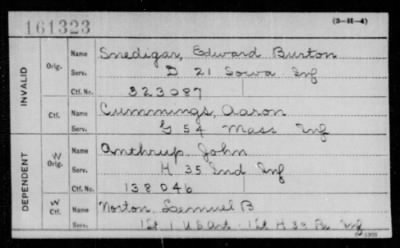 161323
(3-H-4)
INVALID
Orig.
Name Snedigar, Edward Burton
Serv. D 21 Iowa Inf
Ctf. No. 323087
Ctf.
Name Cummings, Aaron
Serv. G 54 Mass Inf
DEPENDENT
W Orig.
Name Anthrup John
Serv. H 35 Ind Inf
Ctf. No. 138046
W Ctf.
Name Norton, Lemuel B
Serv. 1st U S Art. 1st H 33 Inf